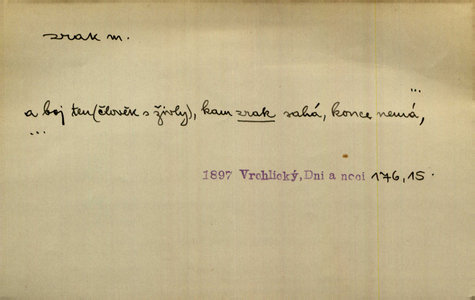 zrak m.
...
a boj ten (člověk s živly), kam zrak sahá, konce nemá,
...
1897 Vrchlický, Dni a noci 176,15.